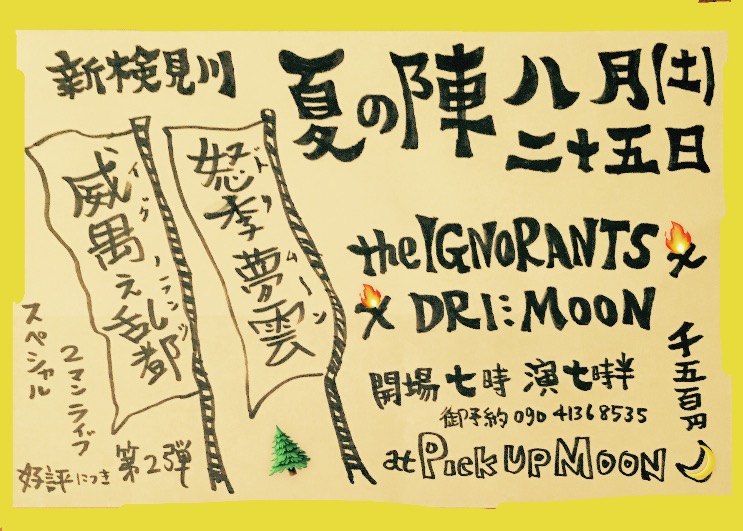 新検見川
夏の陣
八月(土)
二十五日
怒李夢雲
ドリムーン
威禺之乱都
イグノランツ
the IGNORANTS ×
× DRI:MOON
開場 七時 演 七時半
千五百円
御予約 090 41368535
at PICK UP MOON
スペシャル
2マンライブ
好評につき 第2弾